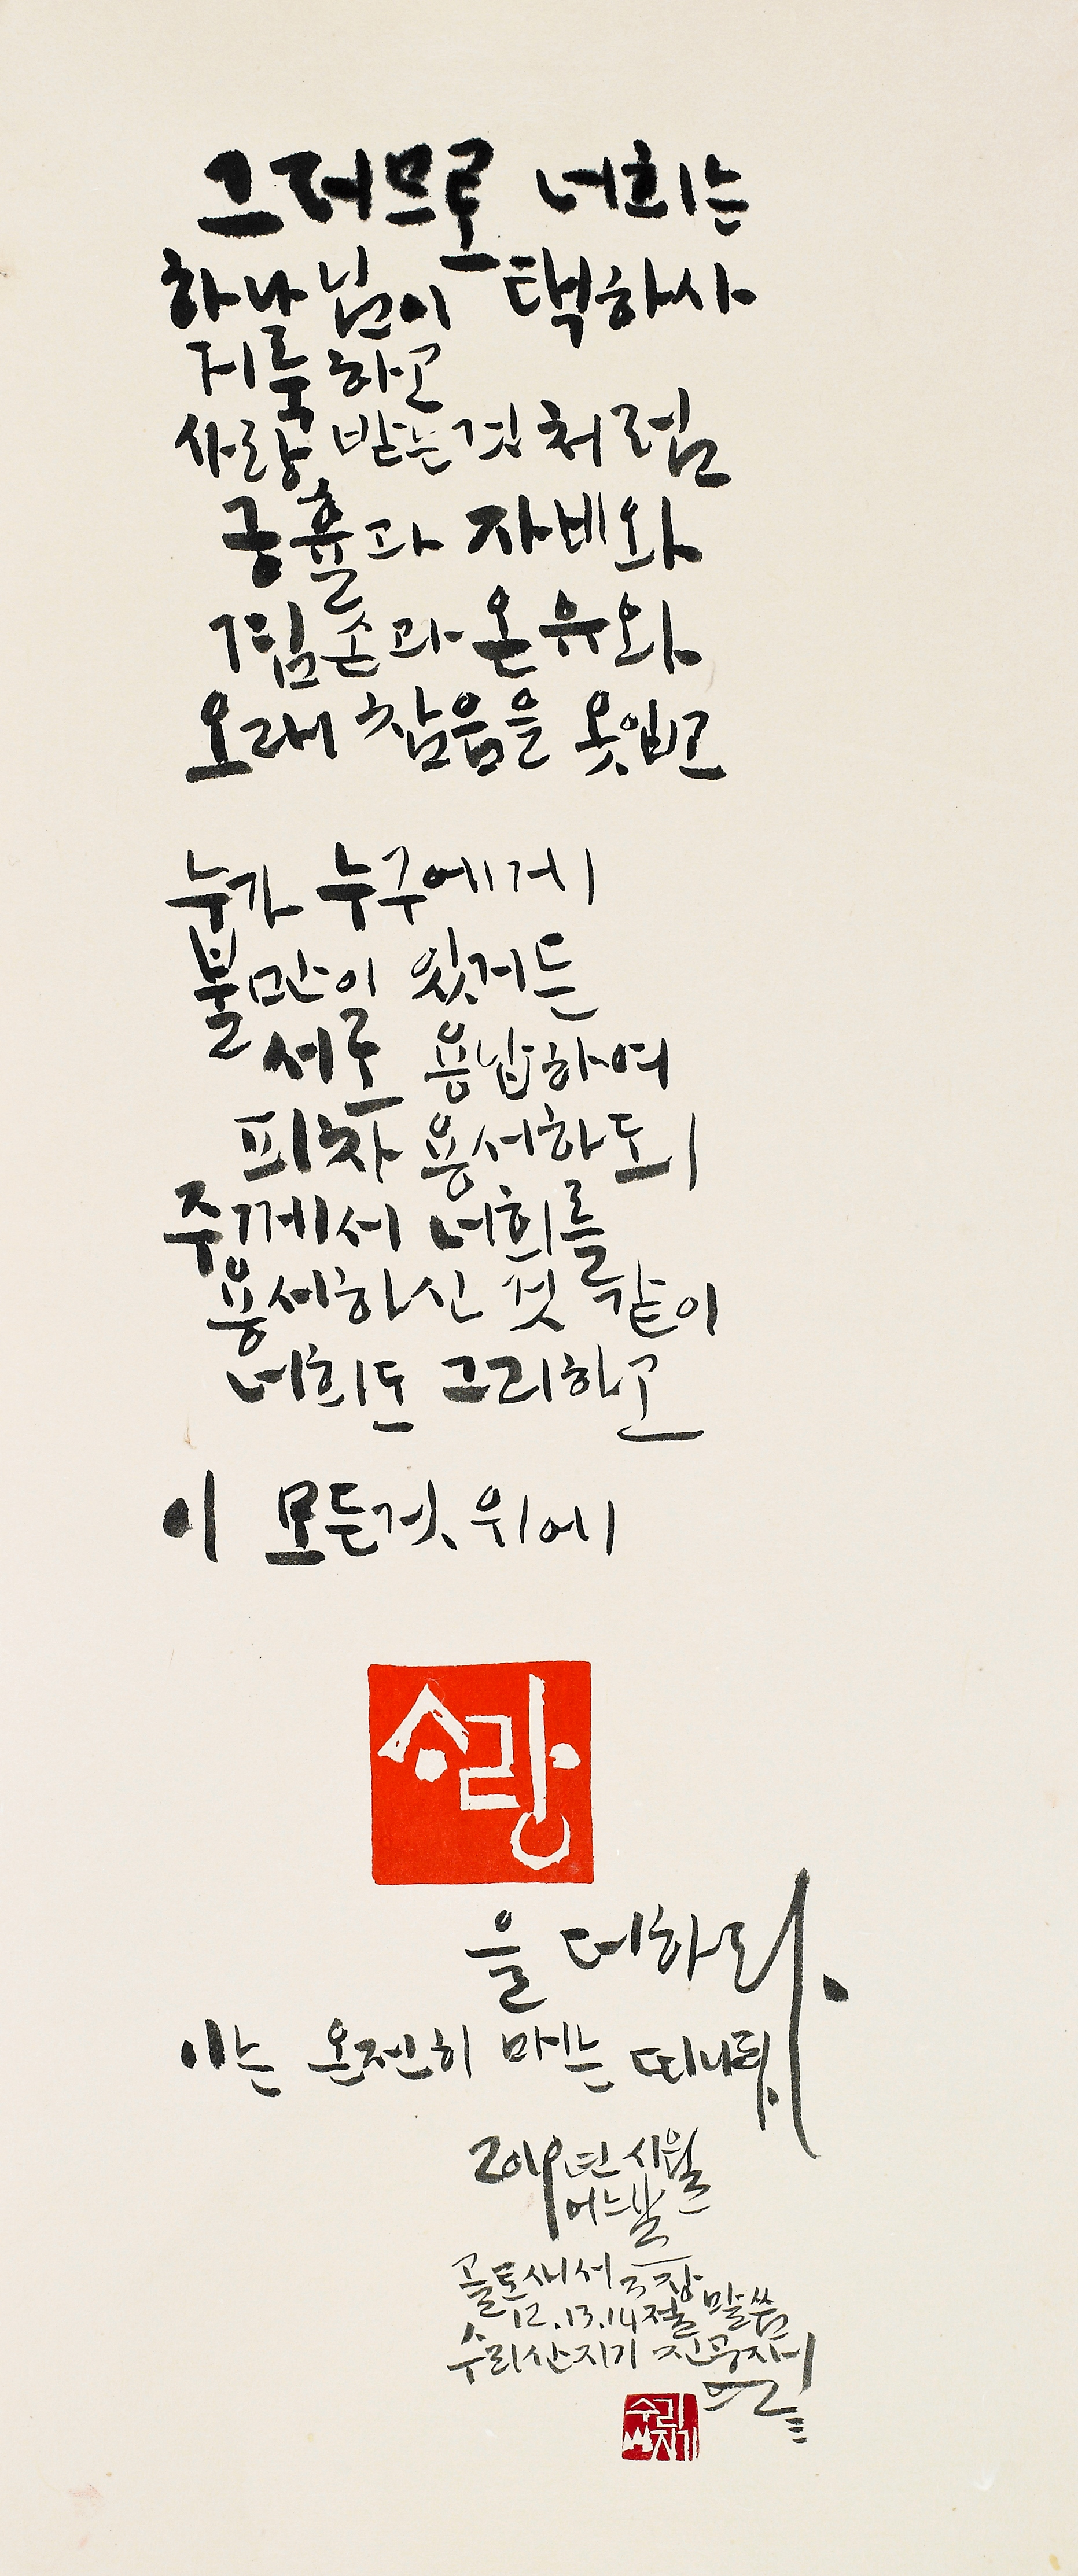 그러므로 너희는
하나님이 택하사
거룩하고
사랑받는 것처럼
긍휼과 자비와
겸손과 온유와
오래 참음을 옷입고
누가 누구에게
불만이 있거든
서로 용납하여
피차 용서하되
주께서 너희를
용서하신 것 같이
너희도 그리하고
이 모든것 위에
사랑
을 더하라
이는 온전히 매는 띠니라
2019년 시월
어느날
골로새서 3장
12.13.14절 말씀
수리산지기
수리
지기